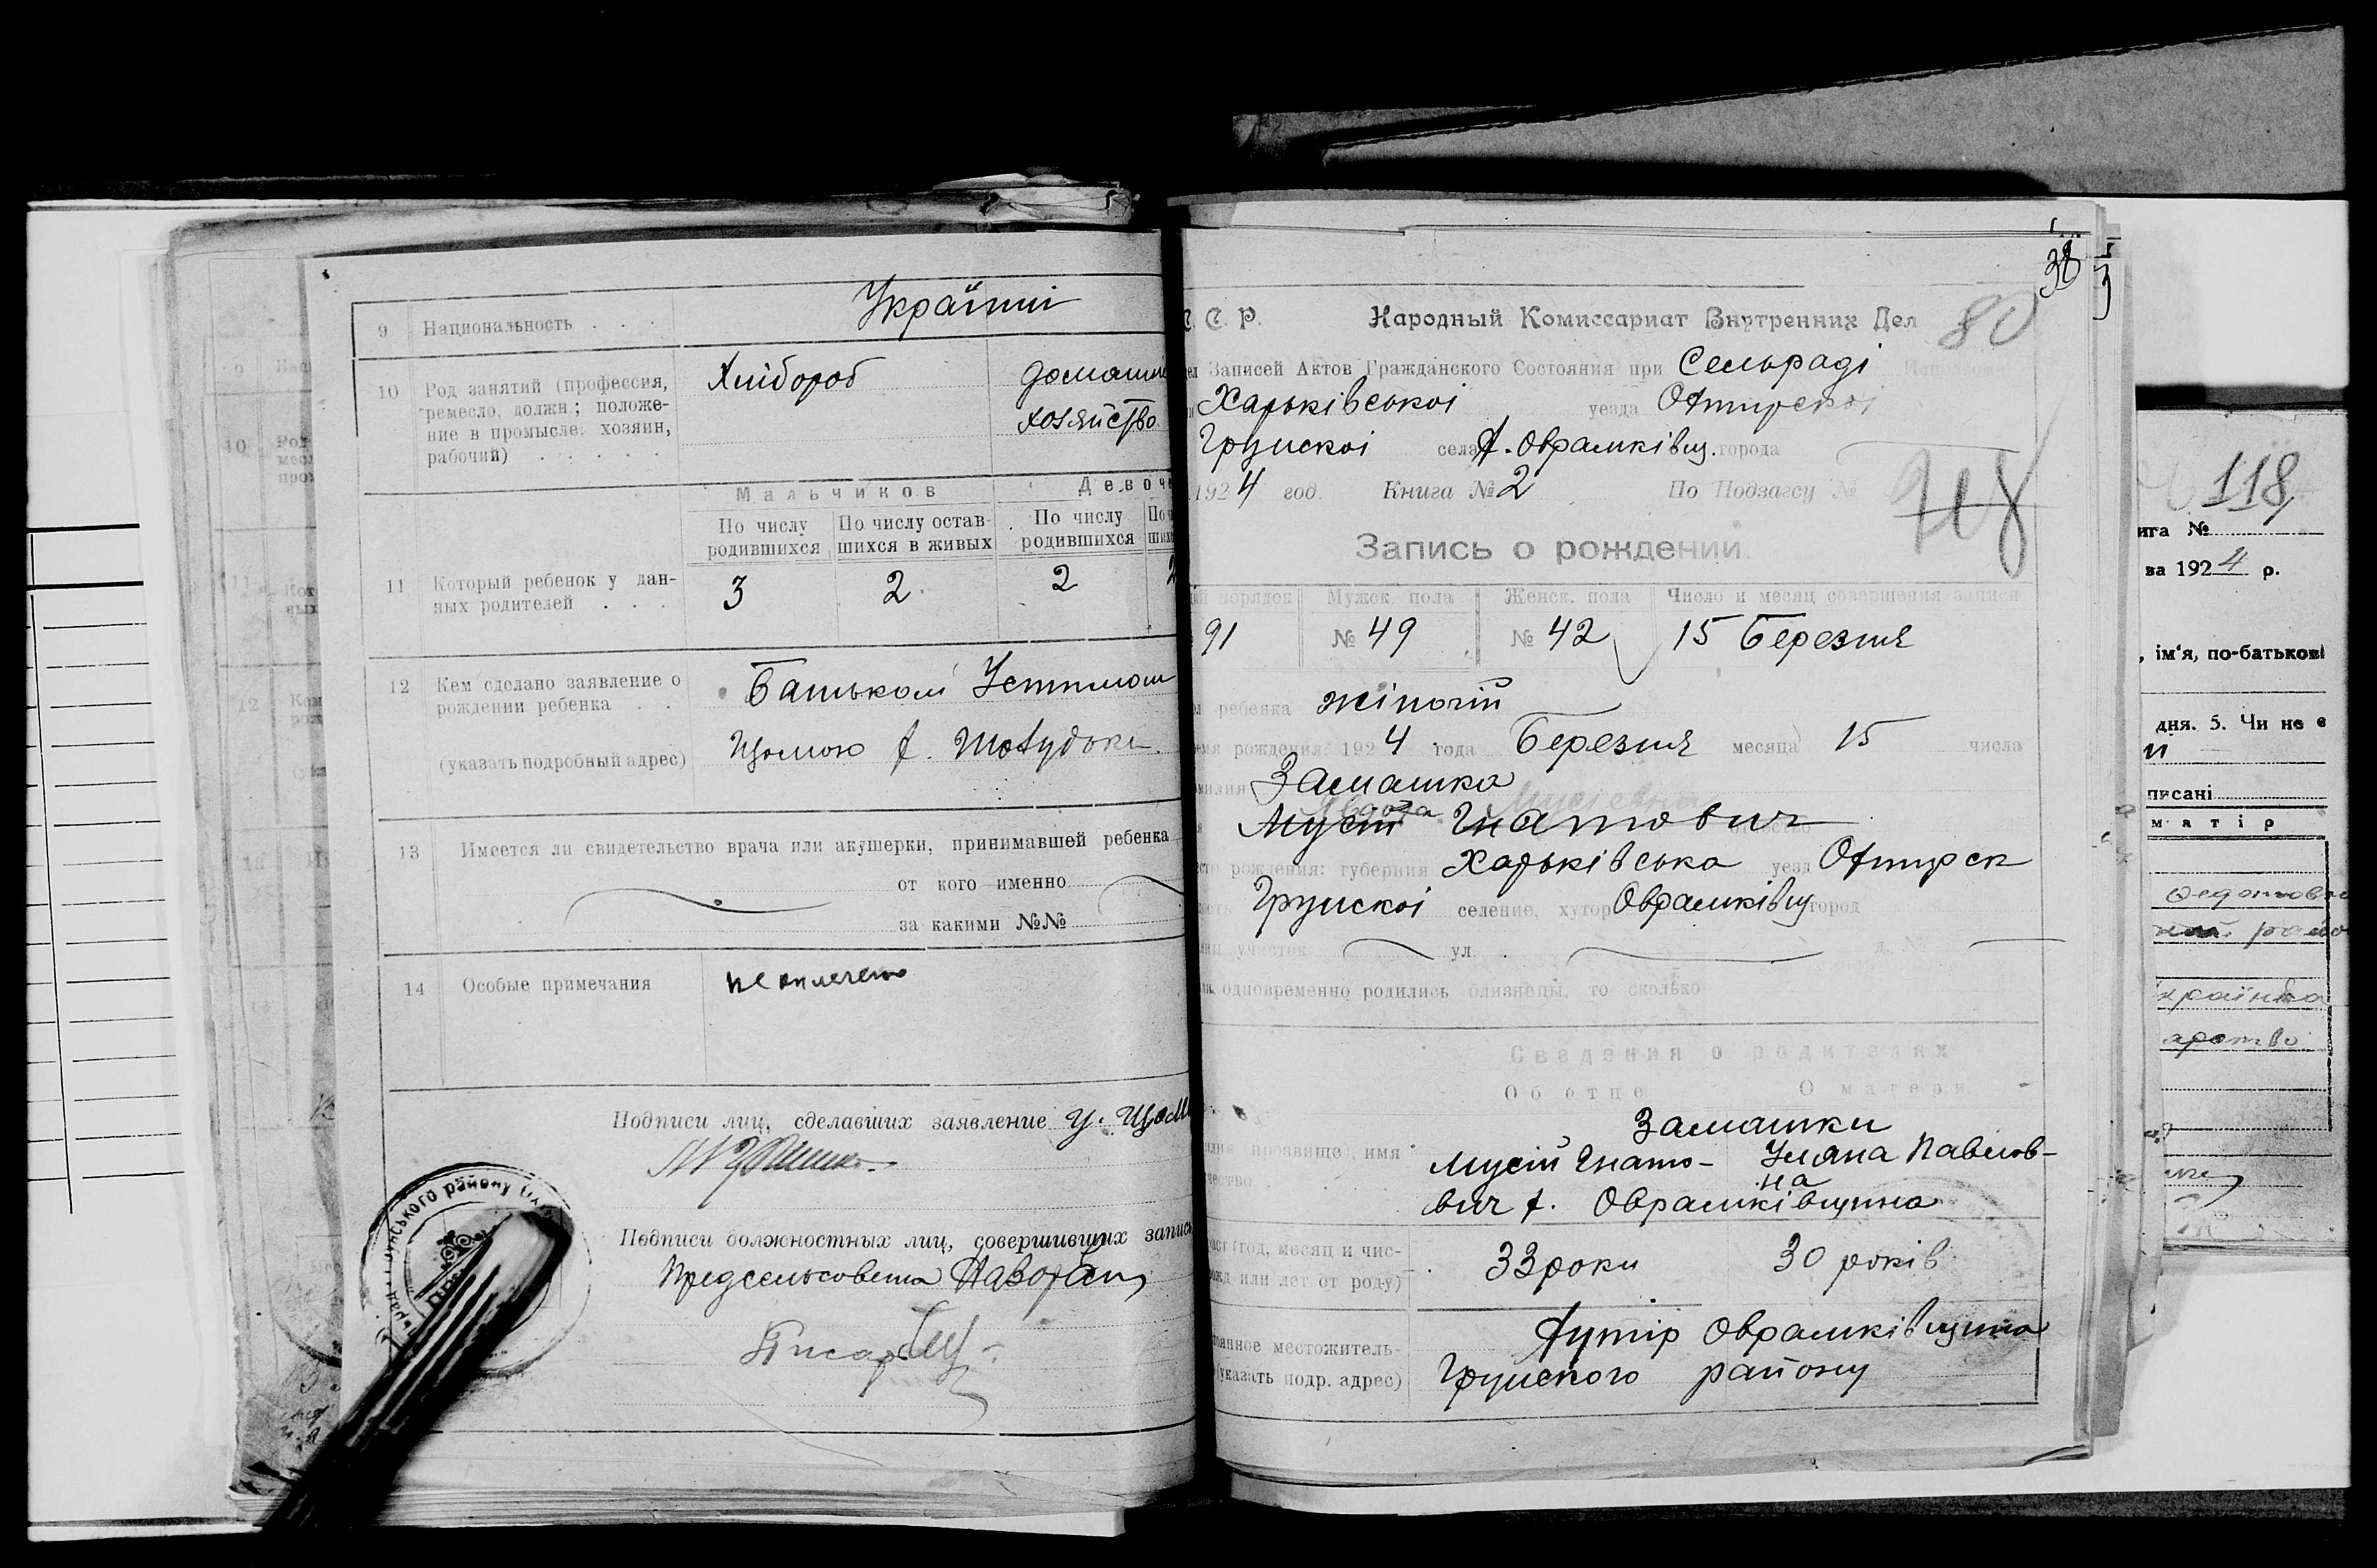 9 Национальность . . .
Украінці
10 Род занятий (профессия,
ремесло, должн.; положе-
ние в промысле: хозяин,
рабочий) . . . . .
Хлібороб
домашнє
хозяйство
Мальчиков Девоч
По числу родившихся По числу остав-шихся в живых По числу родившихся
11 Который ребенок у дан-
ных родителей . . .
3 2 2 2
12 Кем сделано заявление о
рождении ребенка . .
(указать подробный адрес)
Батьком Устимом
Цьомою х.
13 Имеется ли свидетельство врача или акушерки, принимавшей ребенка
от кого именно
за какими №№
14 Особые примечания
не оплачено
Подписи лиц, сделавших заявление У. Цьом
Подписи должностных лиц, совершивших запись
Предсельсовета
Писарь
ського району
38
80
С. Р. Народный Комиссариат Внутренних Дел
Записей Актов Гражданского Состояния при Сельраді
Харьківськоі уезда Охтирскоі
Грунскоі села Х. Оврамківщ. города
1924 год. Книга № 2 По Подзагсу №
Запись о рождении.
порядок Мужск. пола Женск. пола Число и месяц совершения записи
91 № 49 № 42 15 Березня
ребенка жіночій
рождения: 1924 года Березня месяца 15 числа
Замашка
Явдоха Мусіевна
Мусій Гнатович
рождения: губерния Харьківська уезд Охтирск
Грунскоі селение, хутор Оврамківщ город
участок ул. д. №
одновременно родились близнецы, то сколько
Сведения о родителях
Об отце О матери
Замашки
прозвище, имя
Мусій Гнато- Уляна Павлов-
на
вич х. Оврамківщина
(год, месяц и чис-
или лет от роду)
33 роки 30 років
местожитель-
указать подр. адрес)
Хутір Оврамківщина
Грунского району
118
ига №
ва 1924 р.
, ім'я, по-батькові
дня. 5. Чи не є
писані
матір